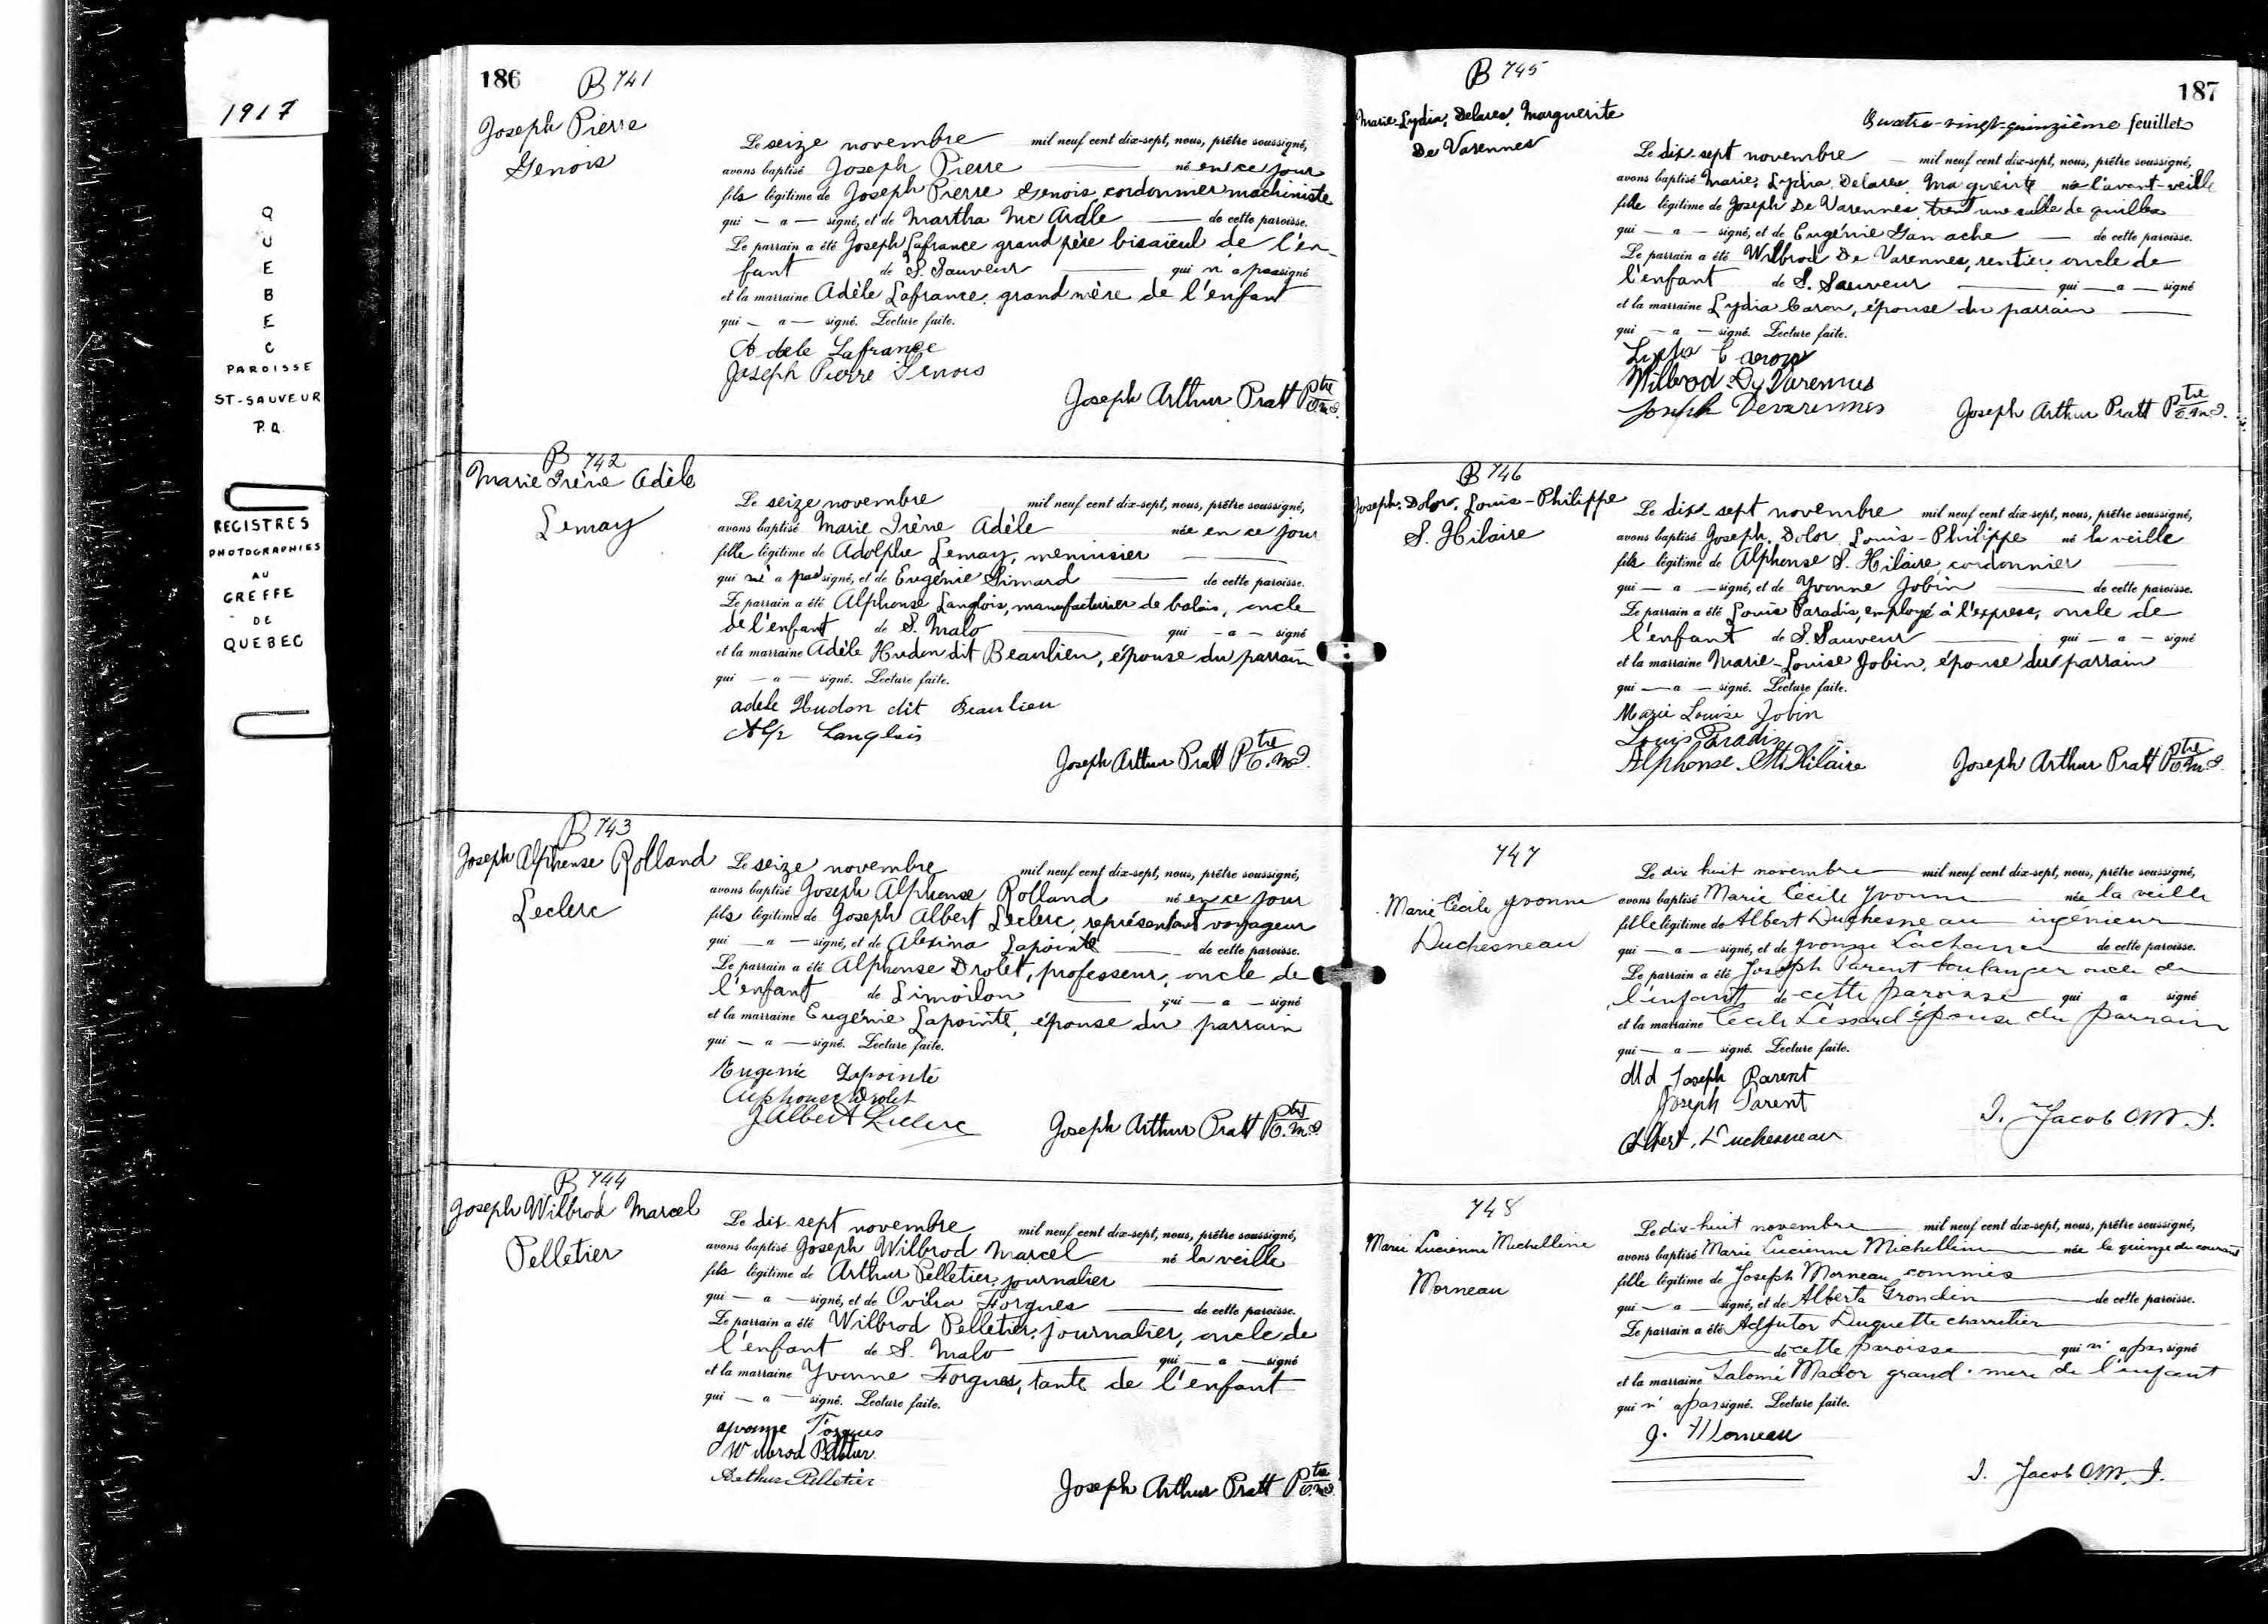 1917
QUEBEC
PAROISSE
ST-SAUVEUR
P.Q.
REGISTRES
PHOTOGRAPHIES
AU
GREFFE
DE
QUEBEC
186
B 741
Joseph Pierre
Genois
Le seize novembre mil neuf cent dix-sept, nous, prêtre soussigné,
avons baptisé Joseph Pierre né en ce jour
fils légitime de Joseph Pierre Genois, cordonnier machiniste
qui — a — signé, et de Martha Mc Ardle de cette paroisse.
Le parrain a été Joseph Lafrance grand père bisaïeul de l'en-
fant de S. Sauveur qui n'a pas signé
et la marraine Adèle Lafrance, grand mère de l'enfant
qui — a — signé. Lecture faite.
Adele Lafrance
Joseph Pierre Genois
Joseph Arthur Pratt Ptre O.M.I.
B 742
Marie Irène Adèle
Lemay
Le seize novembre mil neuf cent dix-sept, nous, prêtre soussigné,
avons baptisé Marie Irène Adèle née en ce jour
fille légitime de Adolphe Lemay, menuisier
qui n'a pas signé, et de Eugénie Simard de cette paroisse.
Le parrain a été Alphonse Langlois, manufacturier de balais, oncle
de l'enfant de S. Malo qui — a — signé
et la marraine Adèle Hudon dit Beaulieu, épouse du parrain
qui — a — signé. Lecture faite.
adele Hudon dit Beaulieu
Langlois
Joseph Arthur Pratt Ptre O.M.I.
B 743
Joseph Alphonse Rolland
Leclerc
Le seize novembre mil neuf cent dix-sept, nous, prêtre soussigné,
avons baptisé Joseph Alphonse Rolland né en ce jour
fils légitime de Joseph Albert Leclerc, représentant voyageur
qui — a — signé, et de Alexina Lapointe de cette paroisse.
Le parrain a été Alphonse Drolet, professeur, oncle de
l'enfant de Limoilou qui — a — signé
et la marraine Eugénie Lapointe, épouse du parrain
qui — a — signé. Lecture faite.
Eugenie Lapointe
Alphonse Drolet
J Albert Leclerc
Joseph Arthur Pratt Ptre O.M.I.
B 744
Joseph Wilbrod Marcel
Pelletier
Le dix-sept novembre mil neuf cent dix-sept, nous, prêtre soussigné,
avons baptisé Joseph Wilbrod Marcel né la veille
fils légitime de Arthur Pelletier, journalier
qui — a — signé, et de Ovilia Forgues de cette paroisse.
Le parrain a été Wilbrod Pelletier, journalier, oncle de
l'enfant de S. Malo qui — a — signé
et la marraine Yvonne Forgues, tante de l'enfant
qui — a — signé. Lecture faite.
Yvonne Forgues
Wilbrod Pelletier
Arthur Pelletier
Joseph Arthur Pratt Ptre O.M.I.
187
Quatre-vingt-quinzième feuillet
B 745
Marie, Lydia, Delarea, Marguerite
De Varennes
Le dix-sept novembre mil neuf cent dix-sept, nous, prêtre soussigné,
avons baptisé Marie, Lydia, Delarea, Marguerite née l'avant-veille
fille légitime de Joseph De Varennes, tient une salle de quilles
qui — a — signé, et de Eugénie Gamache de cette paroisse.
Le parrain a été Wilbrod De Varennes, rentier, oncle de
l'enfant de S. Sauveur qui — a — signé
et la marraine Lydia Caron, épouse du parrain
qui — a — signé. Lecture faite.
Lydia Caron
Wilbrod De Varennes
Joseph Devarennes
Joseph Arthur Pratt Ptre O.M.I.
B 746
Joseph, Dolor, Louis-Philippe
S. Hilaire
Le dix-sept novembre mil neuf cent dix-sept, nous, prêtre soussigné,
avons baptisé Joseph, Dolor, Louis-Philippe né la veille
fils légitime de Alphonse S. Hilaire, cordonnier
qui — a — signé, et de Yvonne Jobin de cette paroisse.
Le parrain a été Louis Paradis, employé à l'express, oncle de
l'enfant de S. Sauveur qui — a — signé
et la marraine Marie-Louise Jobin, épouse du parrain
qui — a — signé. Lecture faite.
Marie Louise Jobin
Louis Paradis
Alphonse St Hilaire
Joseph Arthur Pratt Ptre O.M.I.
747
Marie Cécile Yvonne
Duchesneau
Le dix huit novembre mil neuf cent dix-sept, nous, prêtre soussigné,
avons baptisé Marie Cécile Yvonne née la veille
fille légitime de Albert Duchesneau ingénieur
qui — a — signé, et de Yvonne Lachance de cette paroisse.
Le parrain a été Joseph Parent boulanger oncle de
l'enfant de cette paroisse qui a signé
et la marraine Cécile Lessard épouse du parrain
qui — a — signé. Lecture faite.
Md Joseph Parent
Joseph Parent
Albert Duchesneau
I. Jacob O.M.I.
748
Marie Lucienne Michelline
Morneau
Le dix-huit novembre mil neuf cent dix-sept, nous, prêtre soussigné,
avons baptisé Marie Lucienne Michelline née le quinze du courant
fille légitime de Joseph Morneau commis
qui — a — signé, et de Alberta Grondin de cette paroisse.
Le parrain a été Adjutor Duquette charretier
de cette paroisse qui n'a pas signé
et la marraine Salomé Mador grand-mère de l'enfant
qui n'a pas signé. Lecture faite.
J. Morneau
I. Jacob O.M.I.